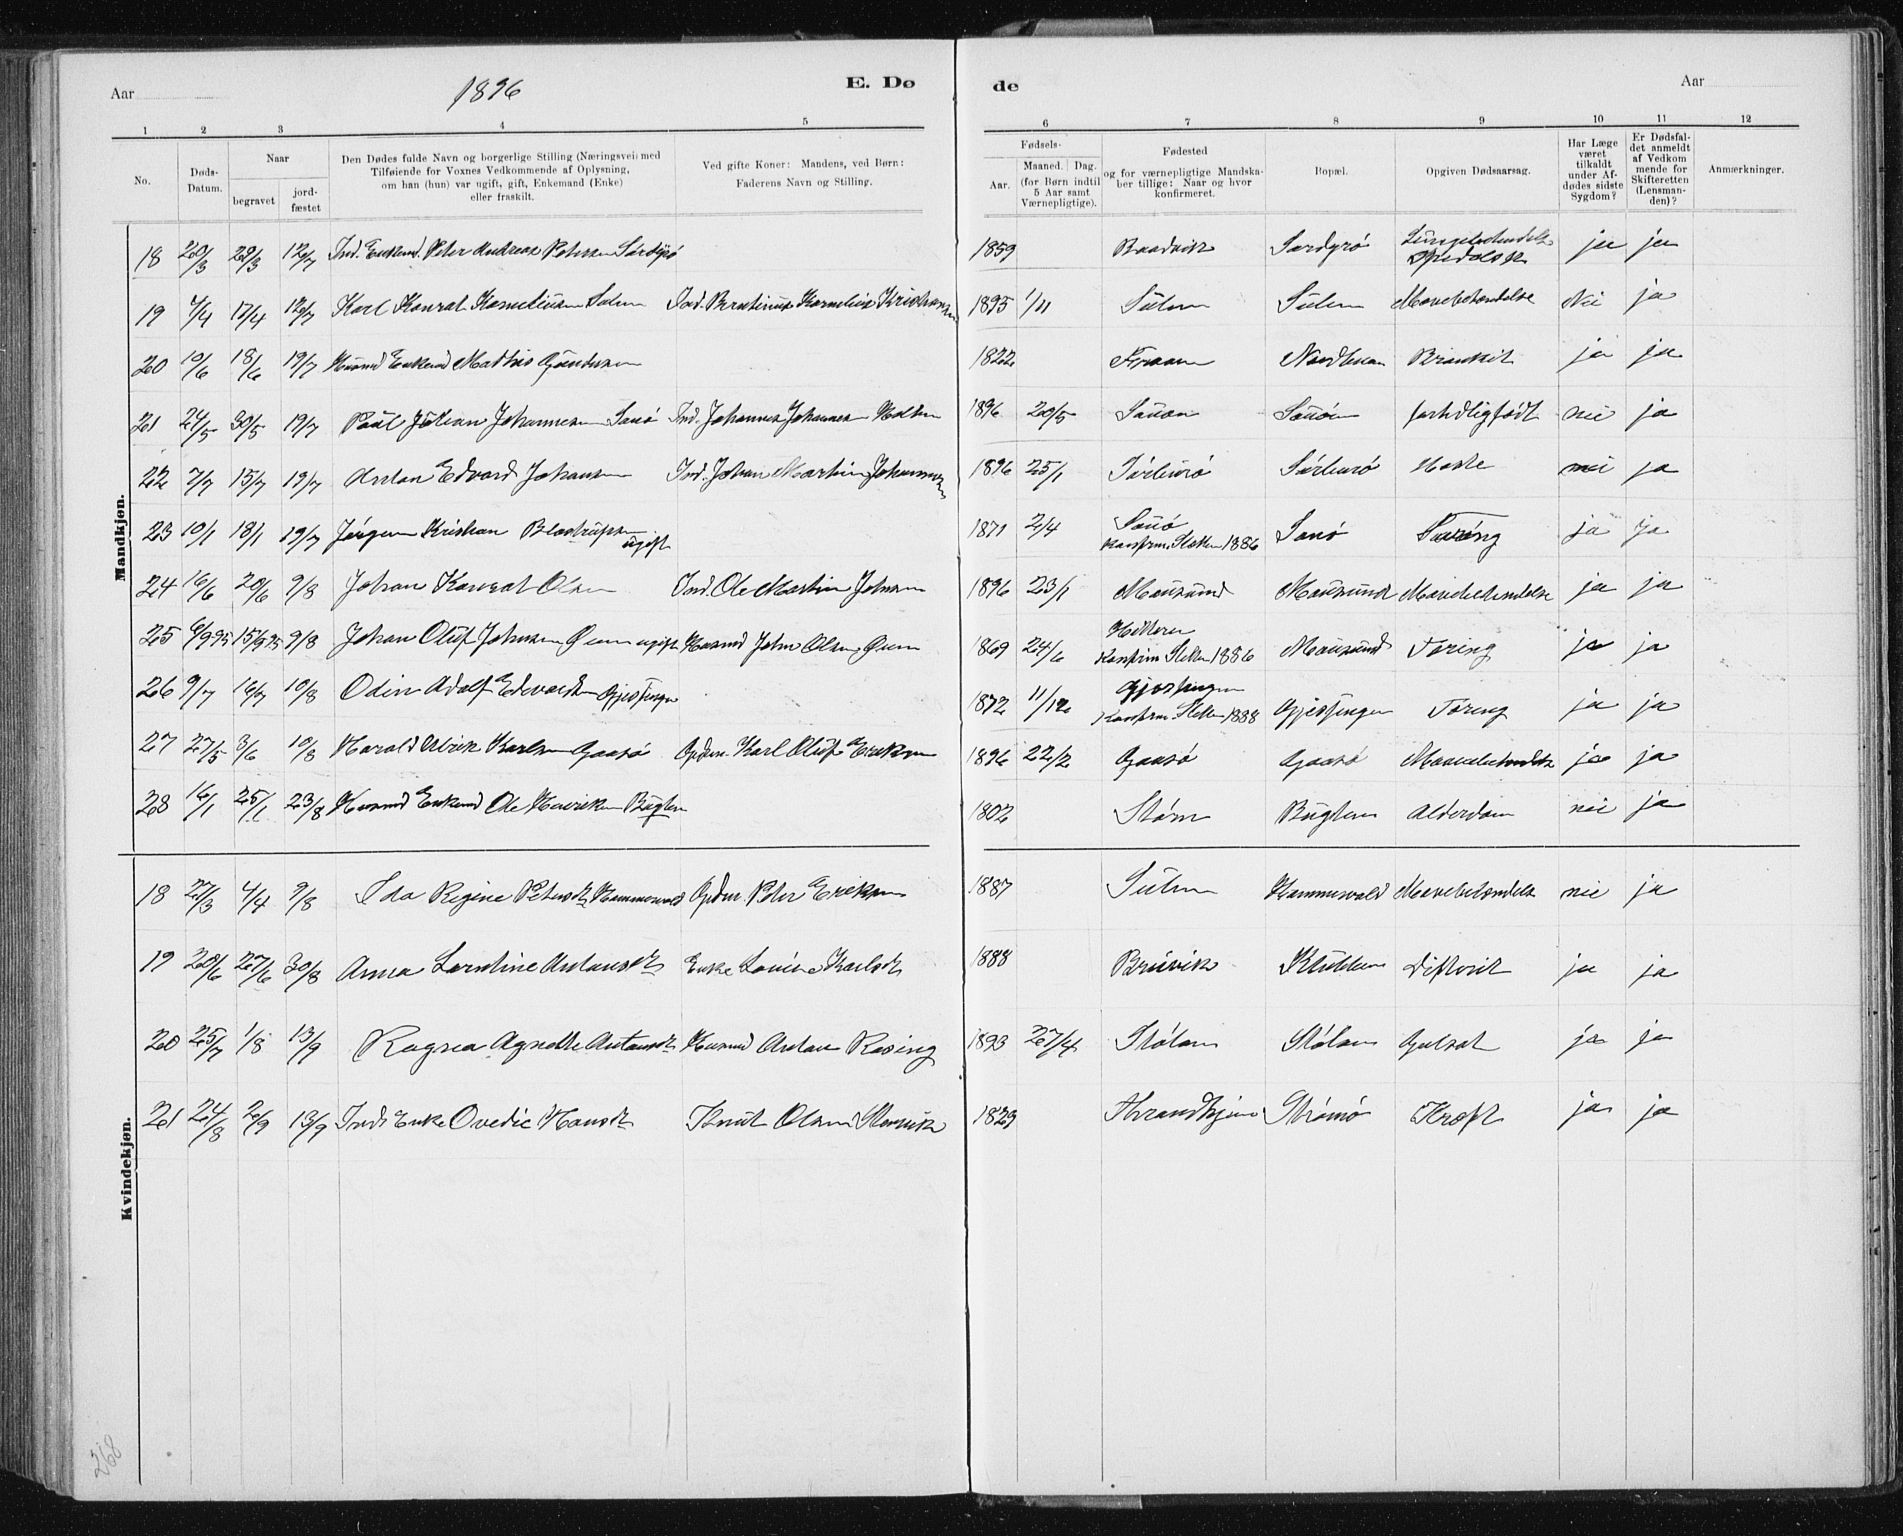 Aar 1896 E. Dø de Aar
1 2 3 4 5 6 7 8 9 10 11 12
No. Døds-Datum. Naar begravet jord-fæstet Den Dødes fulde Navn og borgerlige Stilling (Næringsvei) med Tilføiende for Voxnes Vedkommende af Oplysning, om han (hun) var ugift, gift, Enkemand (Enke) eller fraskilt. Ved gifte Koner: Mandens, ved Børn: Faderens Navn og Stilling. Fødsels- Aar. Maaned. Dag. (for Børn indtil 5 Aar samt Værnepligtige). Fødested og for værnepligtige Mandskaber tillige: Naar og hvor konfirmeret. Bopæl. Opgiven Dødsaarsag. Har Læge været tilkaldt under Afdødes sidste Sygdom? Er Dødsfaldet anmeldt af Vedkommende for Skifteretten (Lensmanden)? Anmærkninger.
Mandkjøn.
18 20/3 29/3 12/7 Ind. Enkemd. Peter Andreas Petersen 1859 ja ja
19 7/4 17/4 12/7 Karl Konrat Korneliusen Sulen Ind. Kornelius Kristiansen 1895 1/11 Sulen Sulen Mavebetændelse Nei ja
20 10/6 18/6 19/7 Husmd Enkemd Mathis Gundersen 1822 ja ja
21 24/5 30/5 19/7 Paul Julian Johannesen Sauø Ind. Johannes Johannesen Holten 1896 20/5 Sauøen fortidligfødt nei ja
22 7/7 15/7 19/7 Anton Edvard Johansen Ind. Johan Martin Johannesen 1896 25/1 Hoste nei ja
23 10/1 18/1 19/7 Jørgen Kristian ugift 1871 2/4 Sauø Konfirm. Sletten 1886 Sauø Tæring ja ja
24 16/6 20/6 9/8 Johan Konrat Olsen Ind. Ole Martin Johnsen 1896 23/1 Mausund Mausund Mavebetændelse ja ja
25 6/9 95 15/9 95 9/8 Johan Oluf Johnsen ugift Husmd John Olsen 1869 24/6 Hitteren Konfirm Sletten 1886 Mausund Tæring ja ja
26 9/7 16/7 10/8 Odin Adolf Edvardsen Gjessingen 1872 11/12 Gjessingen Konfirm. Sletten 1888 Gjessingen Tæring ja ja
27 27/5 3/6 10/8 Harald Alvin Karlsen Gaasø Karl Oluf Eriksen 1896 22/2 Gaasø Gaasø Mavebetændelse ja ja
28 16/1 25/1 23/8 Husmd Enkemd Ole Henriksen Bugten 1802 Støren Bugten Alderdom nei ja
Kvindekjøn.
18 27/3 4/4 9/8 Ida Regine Petersdt. Hammervold Peter Eriksen 1887 Sulen Hammervold Mavebetændelse nei ja
19 20/6 27/6 30/8 Anna Antonsdt. Enke Lovise Karlsdt. 1888 Difterit ja ja
20 25/7 1/8 13/9 Ragna Agnethe Antonsdt. Husmd Anton Rosing 1893 27/4 Stølan Stølan Gulsot ja ja
21 24/8 2/9 13/9 Inds Enke Ovedie Hansdt. Knut Olsen 1823 Thrandhjem Strømø Kræft ja ja
268